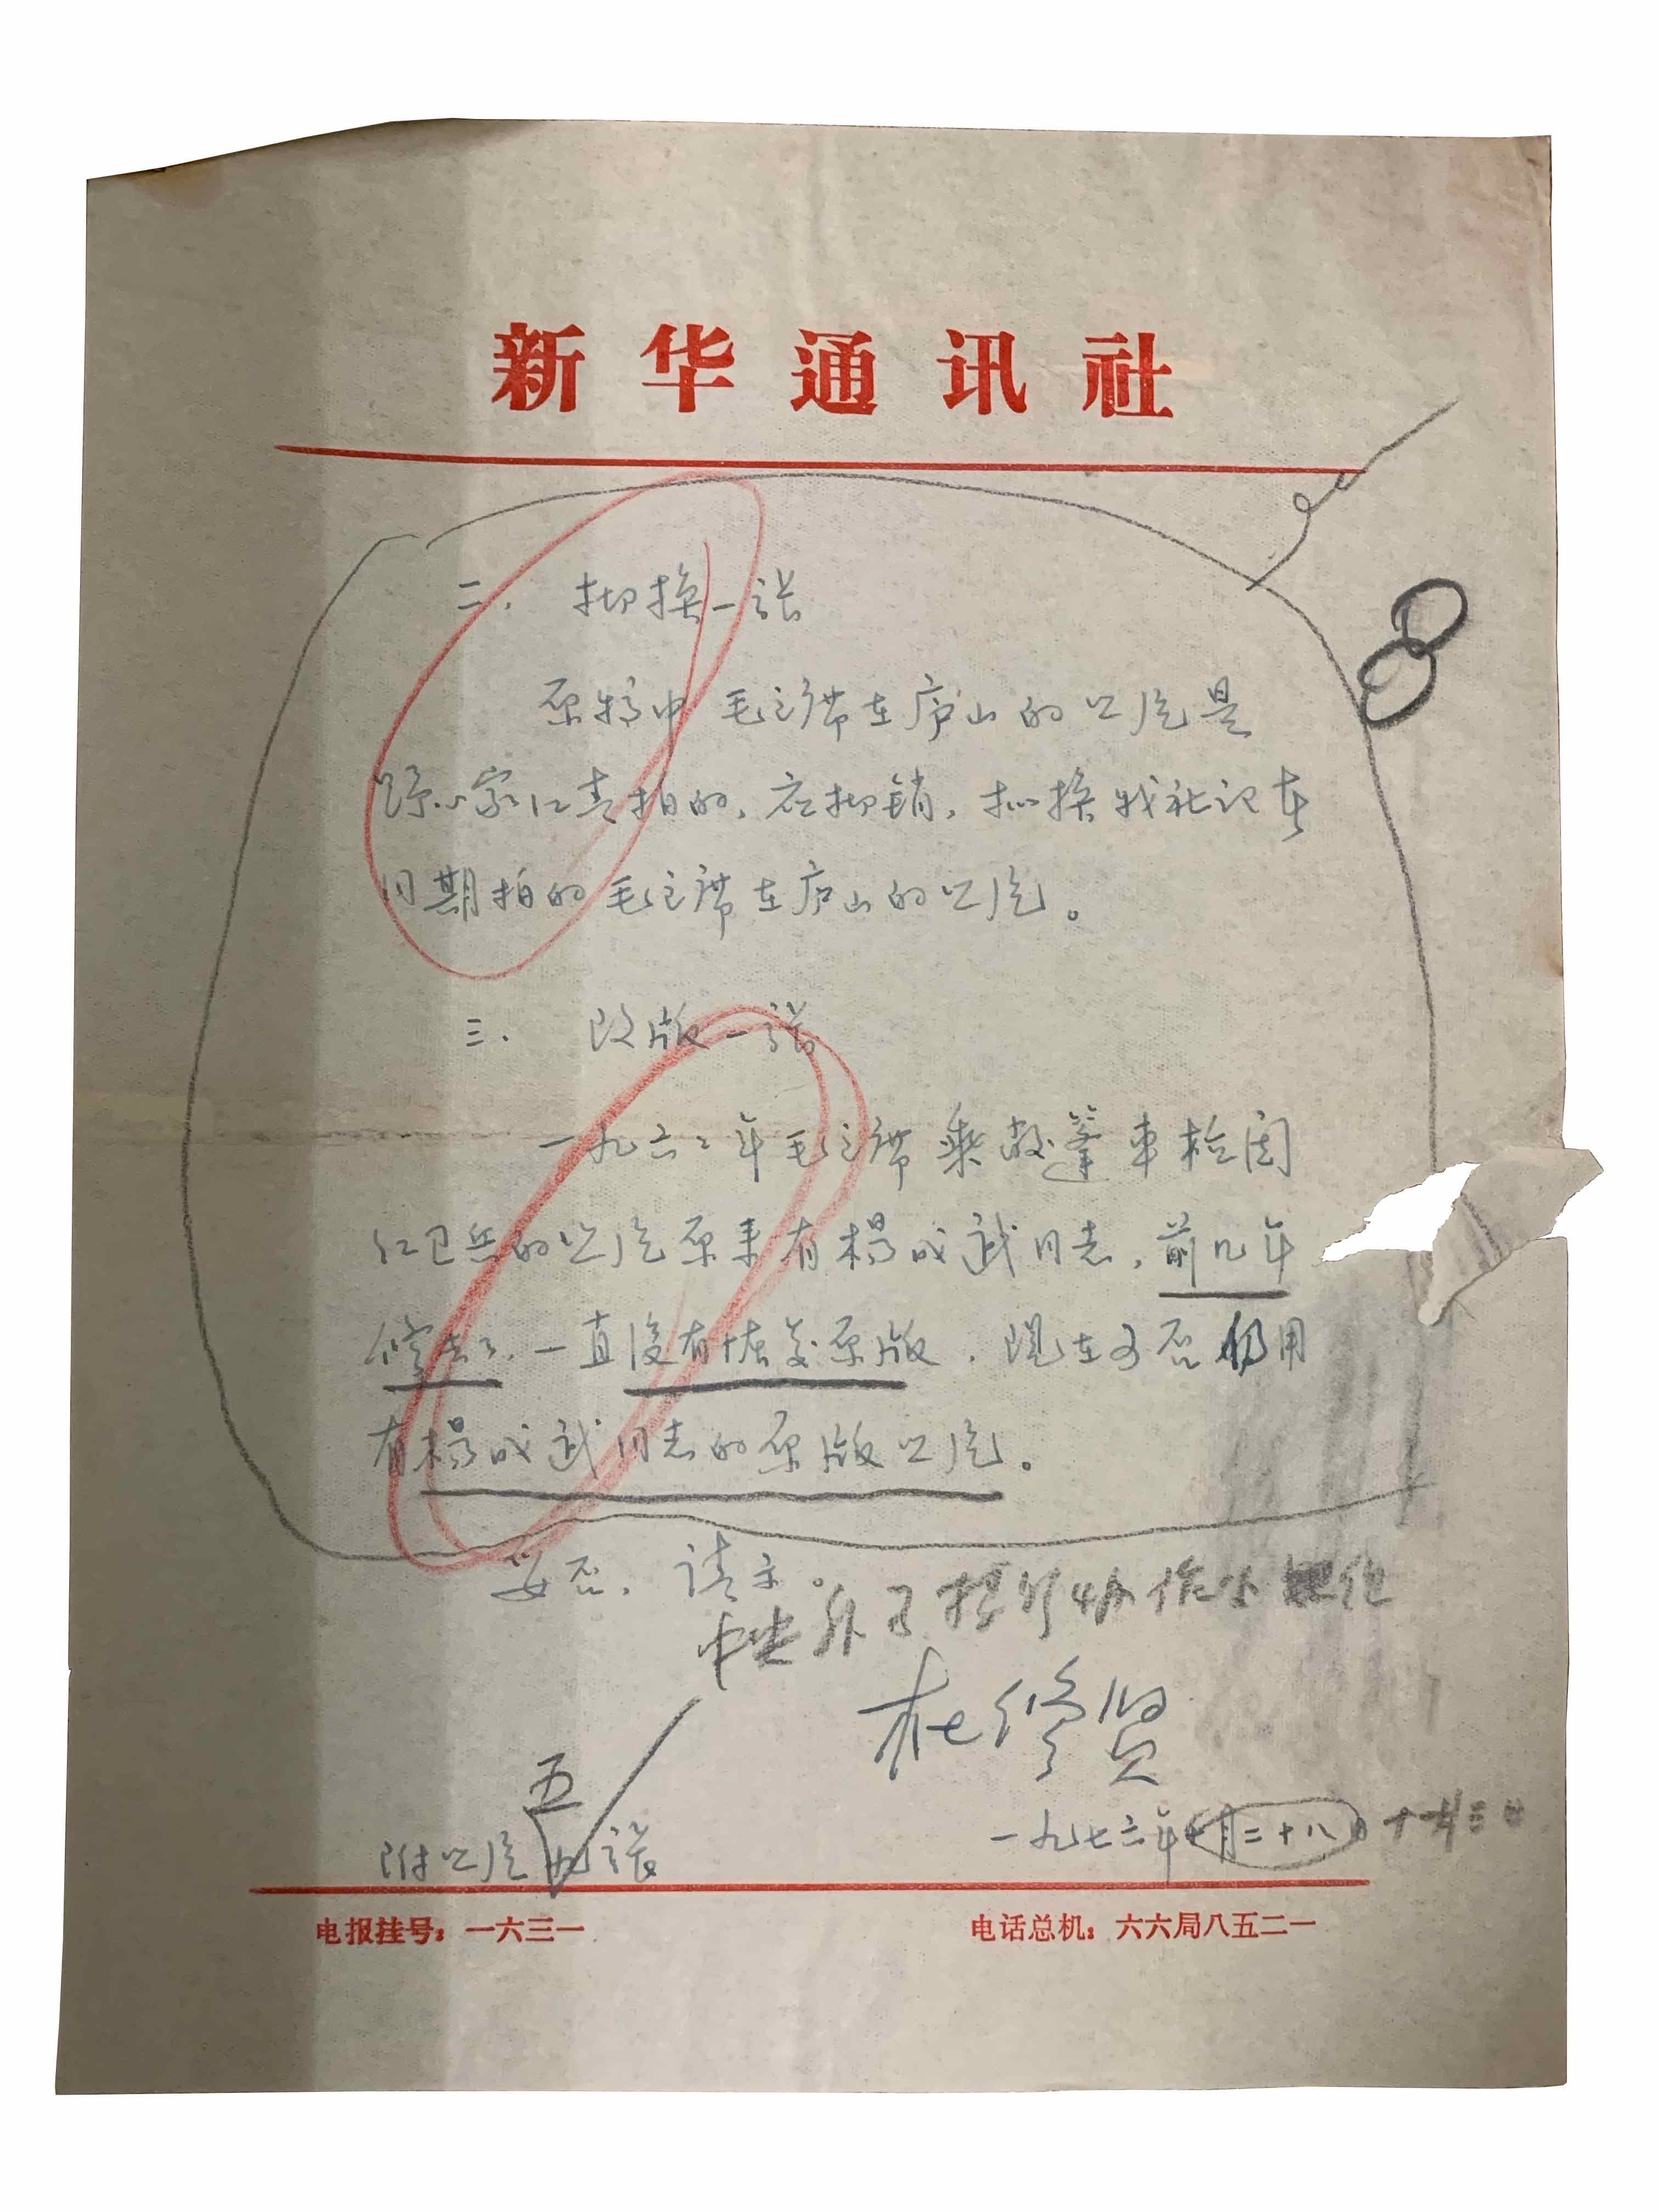 新华通讯社
二. 抽换一张
原稿中毛主席在庐山的照片是
野心家江青拍的，应抽销，抽换我社记者
同期拍的毛主席在庐山的照片。
三. 改版一张
一九六六年毛主席乘敞篷车检阅
红卫兵的照片原来有杨成武同志，前几年
修去了，一直没有恢复原版，现在可否仍用
有杨成武同志的原版照片。
妥否，请示。
中央
杜修贤
五
一九七六年十月二十八日
附照片九张
电报挂号：一六三一
电话总机：六六局八五二一